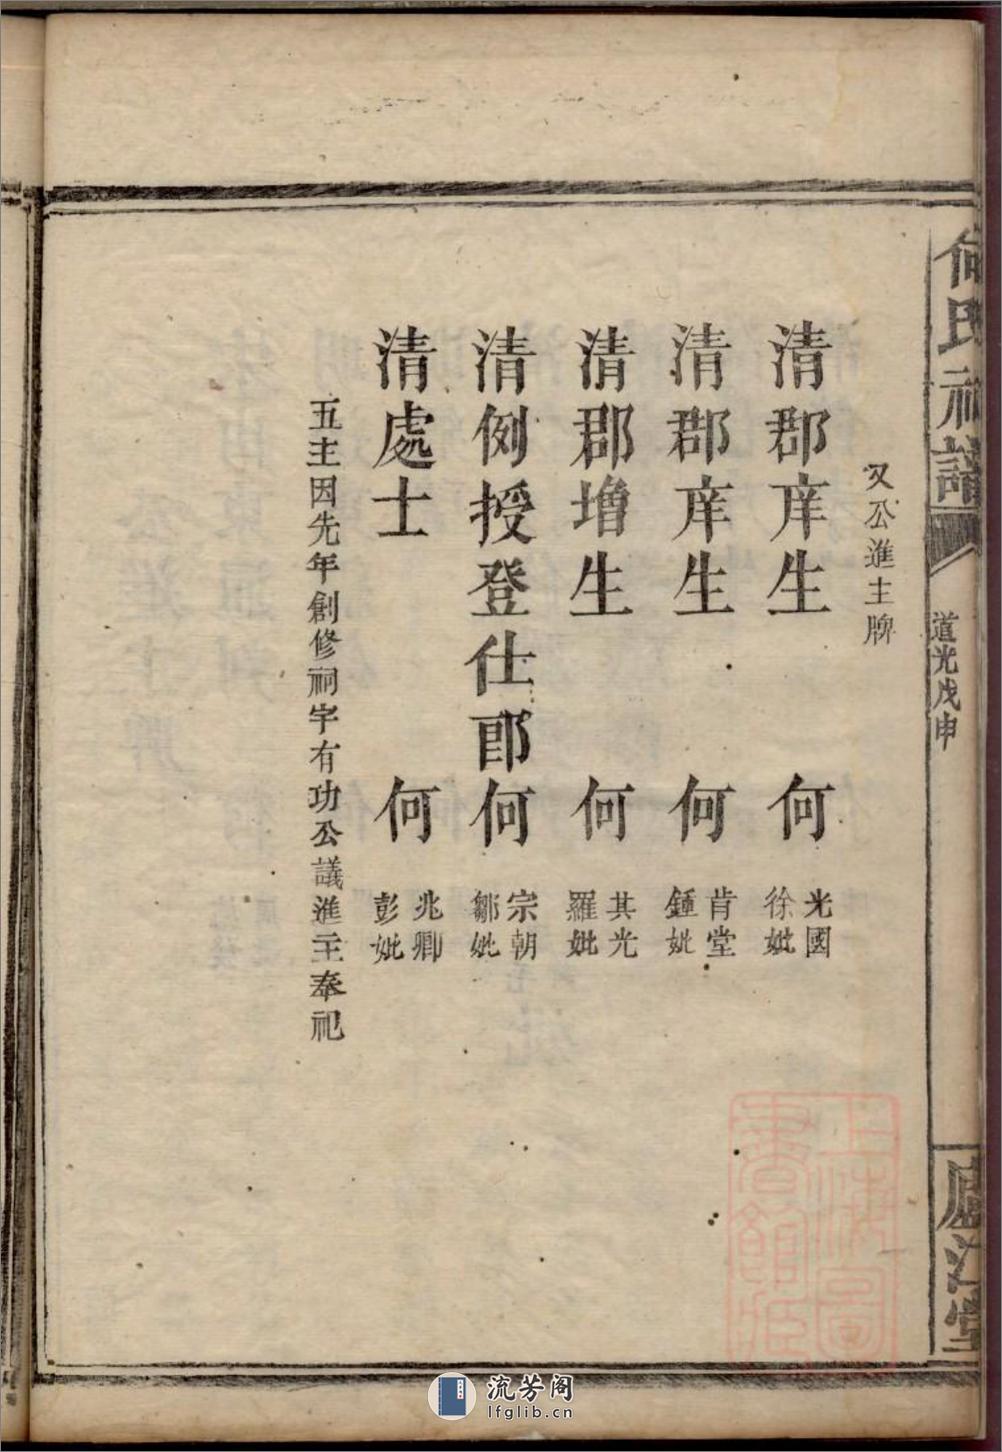 何氏祠譜
道光戊申
廬江堂
又公進主牌
清郡庠生 何 光國 徐妣
清郡庠生 何 肯堂 鍾妣
清郡增生 何 其光 羅妣
清例授登仕郎何 宗朝 鄒妣
清處士 何 兆卿 彭妣
五主因先年創修祠宇有功公議進主奉祀
流芳阁
lfglib.cn